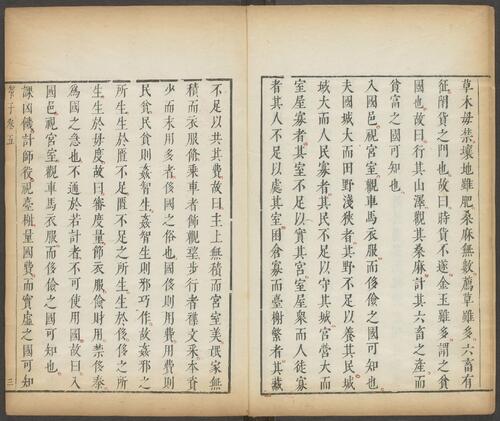 草木毋禁壤地雖肥桑麻無數薦草雖多六畜有
征閉貨之門也故曰時貨不遂金玉雖多謂之貧
國也故曰行其山澤觀其桑麻計其六畜之產而
貧富之國可知也
入國邑視宮室觀車馬衣服而侈儉之國可知也
夫國城大而田野淺狹者其野不足以養其民城
域大而人民寡者其民不足以守其城宮營大而
室屋寡者其室不足以實其宮室屋衆而人徒寡
者其人不足以處其室囷倉寡而臺榭繁者其藏
不足以共其費故曰主上無積而宮室美氓家無
積而衣服脩乘車者飾觀望步行者襍文采本資
少而末用多者侈國之俗也國侈則用費用費則
民貧民貧則姦智生姦智生則邪巧作故姦邪之
所生生於匱不足匱不足之所生生於侈侈之所
生生於毋度故曰審度量節衣服儉財用禁侈泰
爲國之急也不通於若計者不可使用國故曰入
國邑視宮室觀車馬衣服而侈儉之國可知也
課凶饑計師役視臺榭量國費而實虛之國可知
管子卷五
三